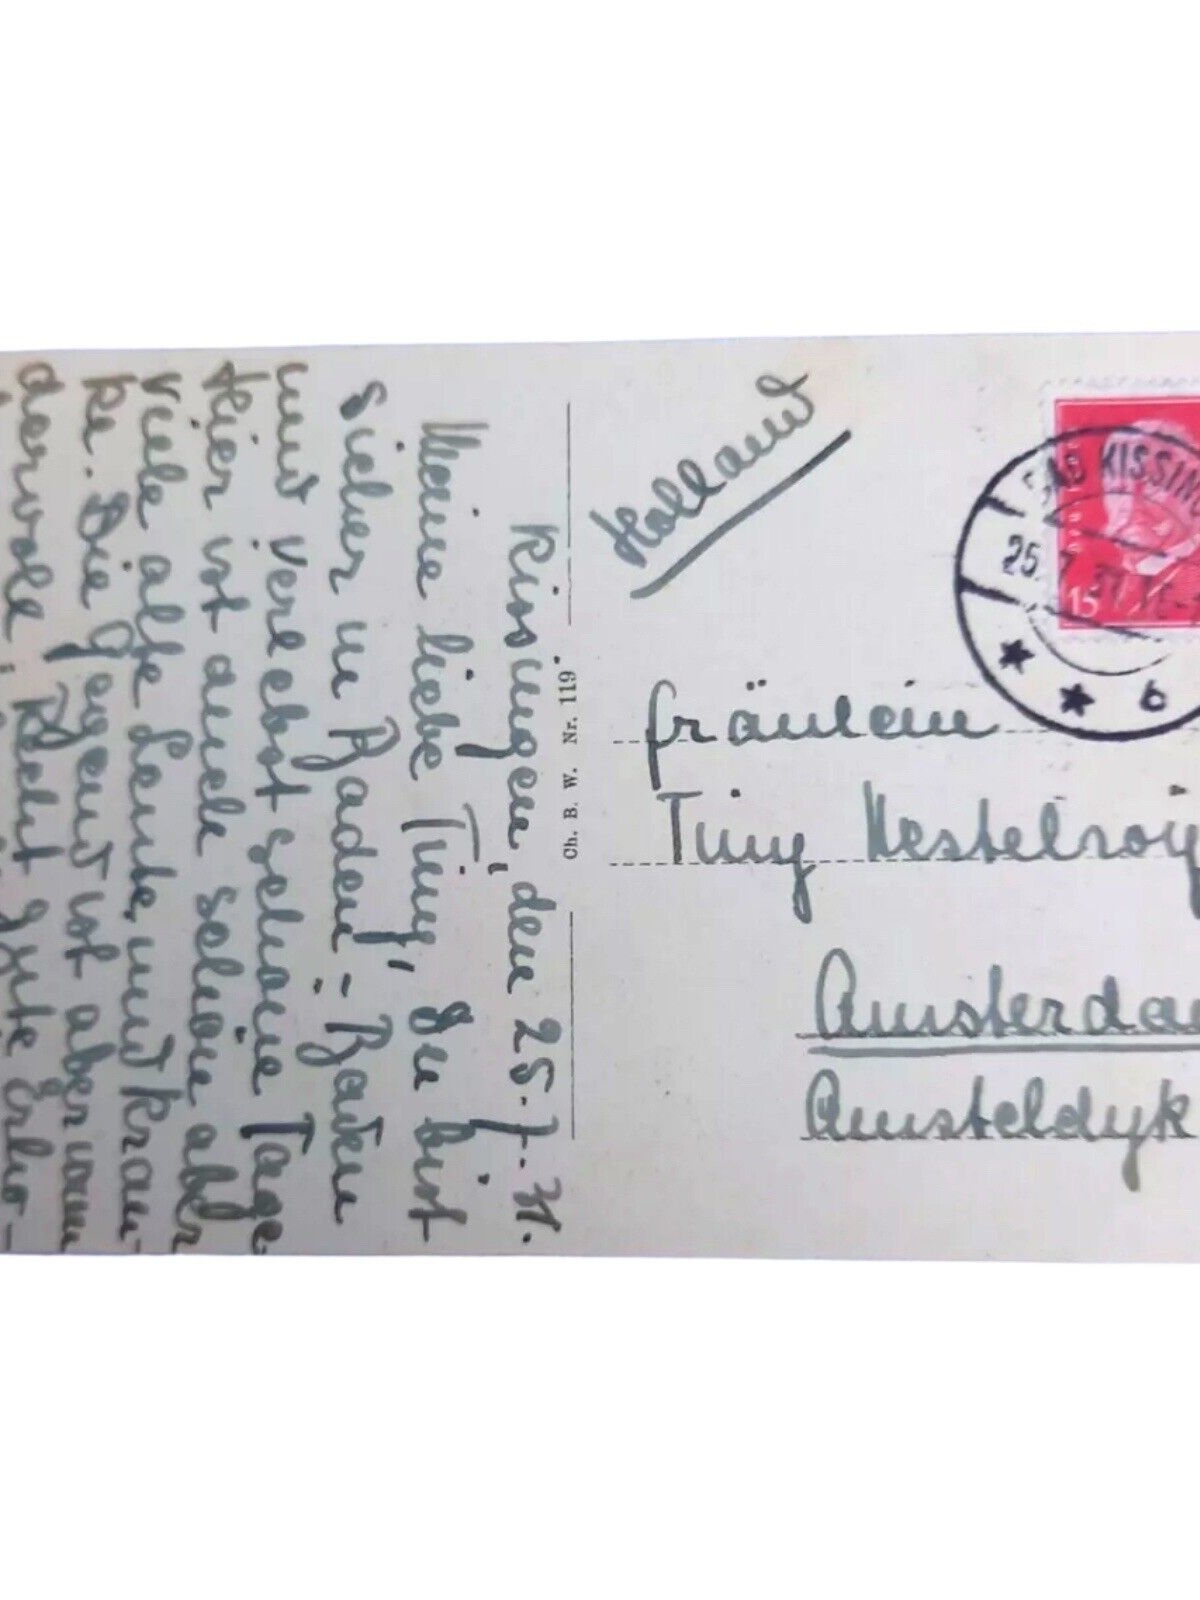 Kissingen, den 25-7-31.
Meine liebe Tiny, Du bist
sicher in Baden-Baden
und verlebst schöne Tage
Hier ist auch schön aber
viele alte Leute, und kran-
ke. Die Gegend ist aber wun
dervoll! Recht gute Erho-
Ch. B. W. Nr. 119
Holland
BAD KISSING
25. 7. 31
15
* * b
Fräulein
Tiny
Amsterda
Amsteldyk